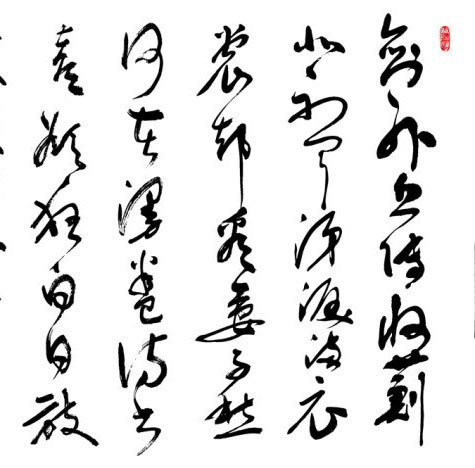 劍外忽傳收薊
北初聞涕淚滿衣
裳却看妻子愁
何在漫卷詩書
喜欲狂白日放